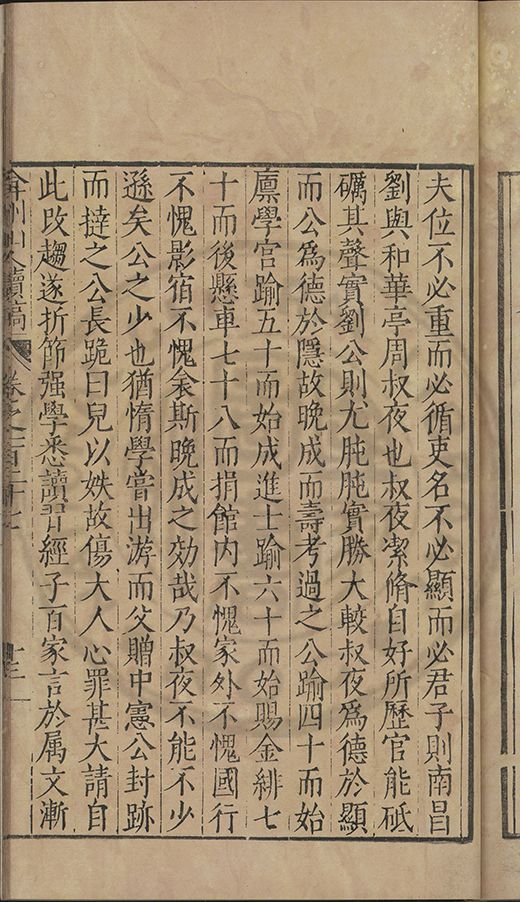 夫位不必重而必循吏名不必顯而必君子則南昌
劉與和華亭周叔夜也叔夜潔脩自好所歷官能砥
礪其聲實劉公則尤肫肫實勝大較叔夜爲德於顯
而公爲德於隱故晚成而壽考過之公踰四十而始
廪學官踰五十而始成進士踰六十而始賜金緋七
十而後懸車七十八而捐館内不愧家外不愧國行
不愧影宿不愧衾斯晚成之効哉乃叔夜不能不少
遜矣公之少也猶惰學嘗出游而父贈中憲公封跡
而撻之公長跪曰兒以妷故傷大人心罪甚大請自
此改趨遂折節强學悉讀習經子百家言於属文漸
弇州山人續稿 卷之一百三十七 十三